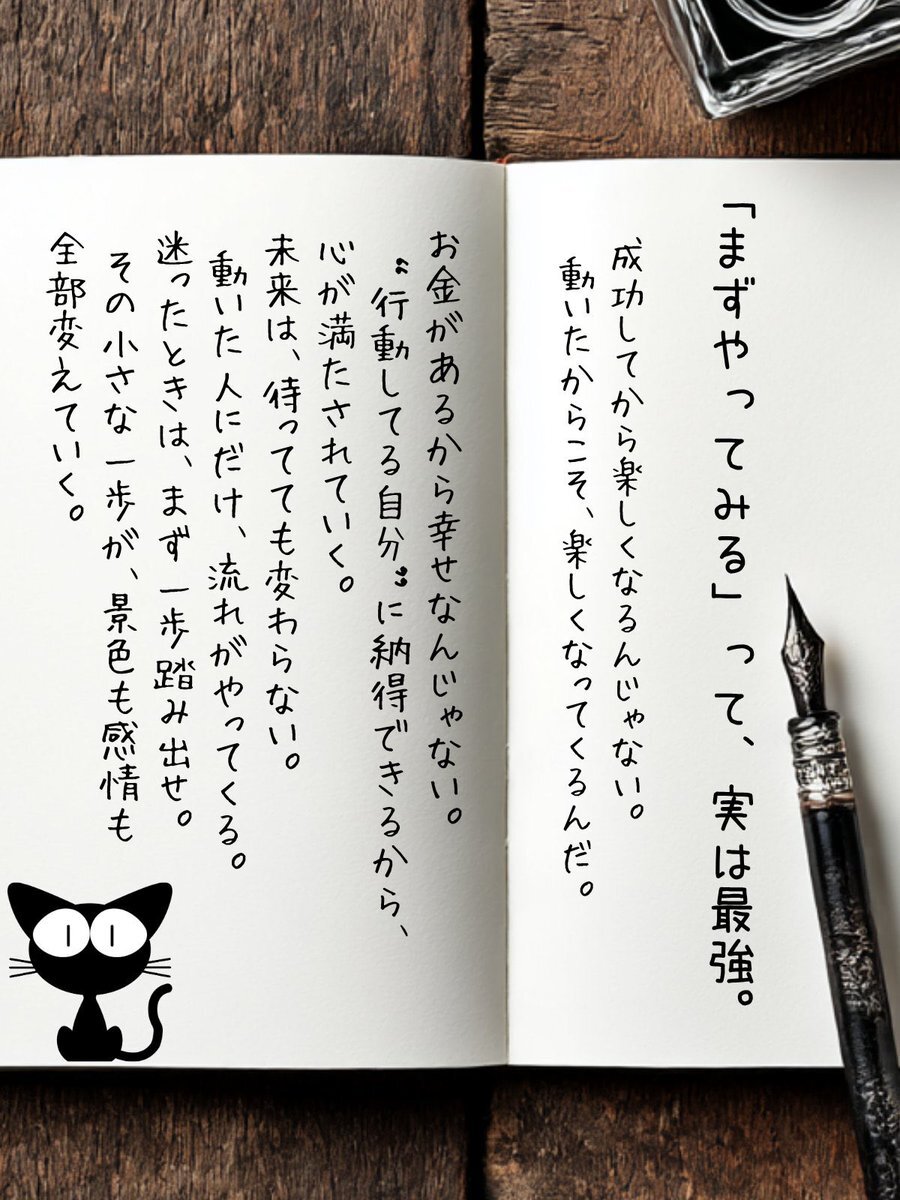 「まずやってみる」って、実は最強。
成功してから楽しくなるんじゃない。
動いたからこそ、楽しくなってくるんだ。
お金があるから幸せなんじゃない。
“行動してる自分”に納得できるから、
心が満たされていく。
未来は、待ってても変わらない。
動いた人にだけ、流れがやってくる。
迷ったときは、まず一歩踏み出せ。
その小さな一歩が、景色も感情も
全部変えていく。